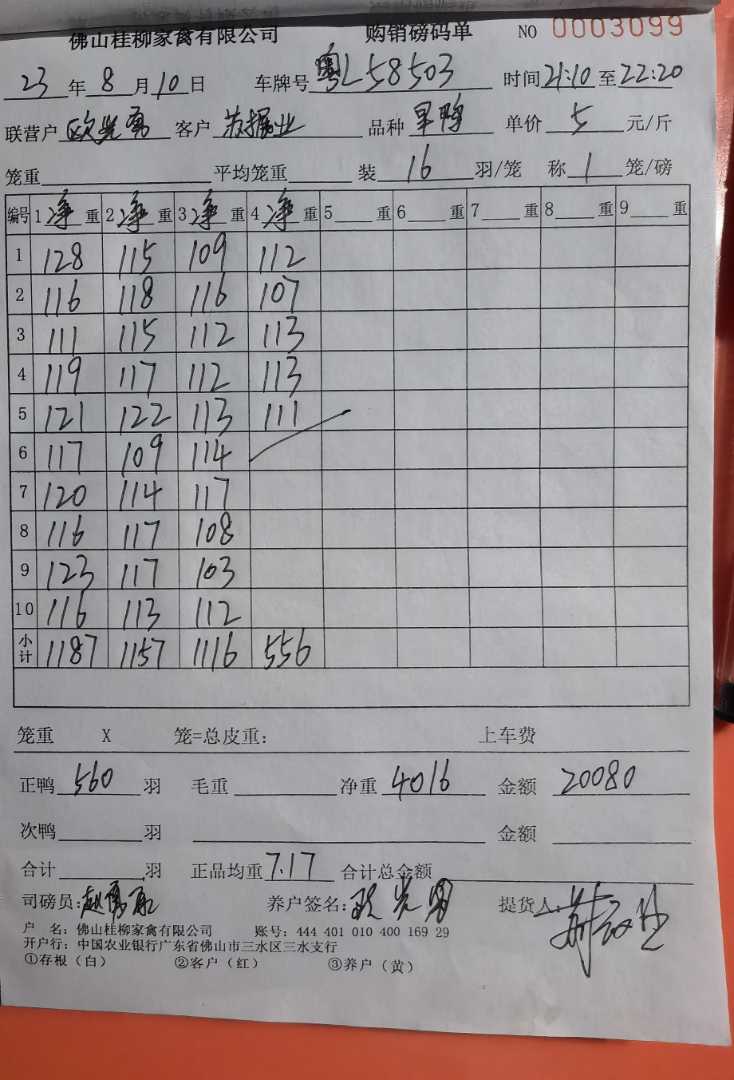 佛山桂柳家禽有限公司 购销磅码单 NO 0003099
23 年 8 月 10 日 车牌号 粤L58503 时间 21:10 至 22:20
联营户 欧光勇 客户 苏振业 品种 旱鸭 单价 5 元/斤
笼重 平均笼重 装 16 羽/笼 称 1 笼/磅
编号 1 净 重 2 净 重 3 净 重 4 净 重 5 重 6 重 7 重 8 重 9 重
1 128 115 109 112
2 116 118 116 107
3 111 115 112 113
4 119 117 112 113
5 121 122 113 111
6 117 109 114
7 120 114 117
8 116 117 108
9 123 117 103
10 116 113 112
小计 1187 1157 1116 556
笼重 X 笼=总皮重: 上车费
正鸭 560 羽 毛重 净重 4016 金额 20080
次鸭 羽 金额
合计 羽 正品均重 7.17 合计总金额
司磅员: 养户签名: 欧光勇 提货人:
户 名: 佛山桂柳家禽有限公司 账号: 444 401 010 400 169 29
开户行: 中国农业银行广东省佛山市三水区三水支行
①存根(白) ②客户(红) ③养户(黄)